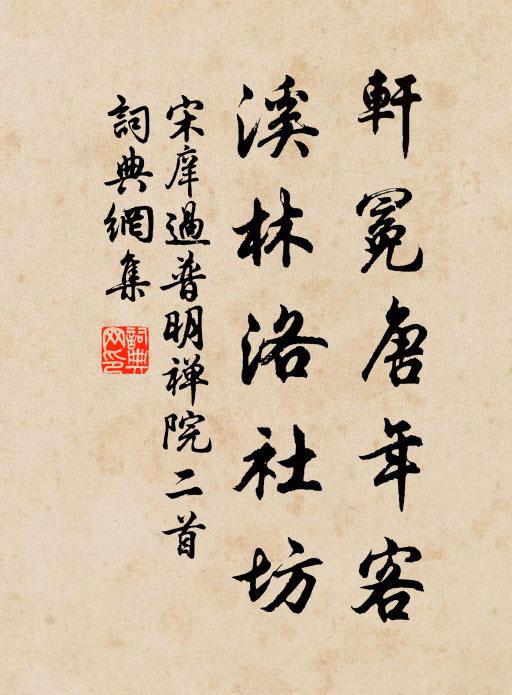 軒冕唐年客
溪林洛社坊
宋庠過普明禅院二首
詞典網集
詞典網印